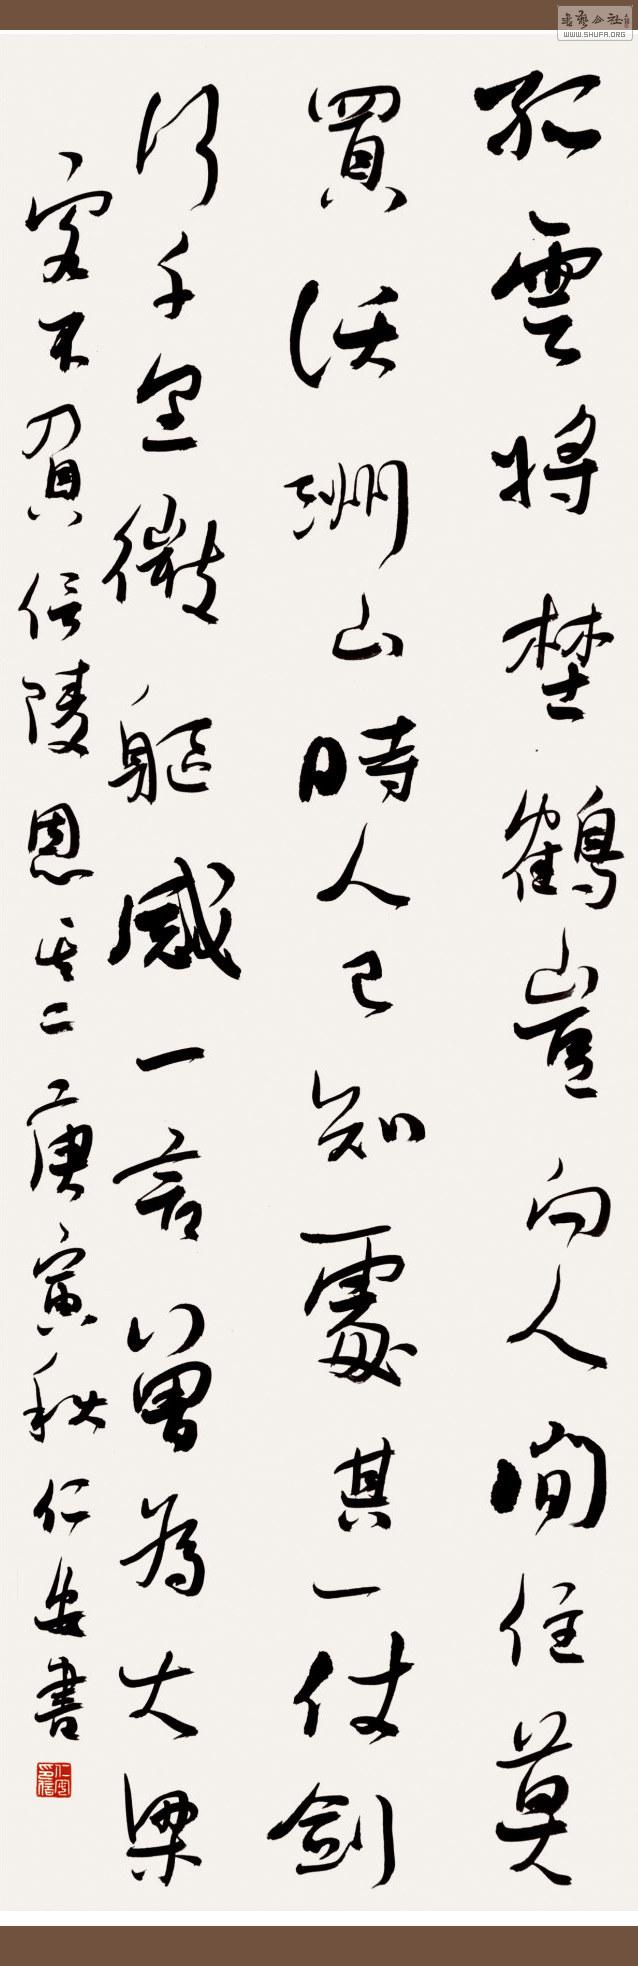 孤雲將埜鶴豈向人間住莫
買沃洲山時人已知處其一仗劍
行千里微軀感一言曾為大梁
客不負信陵恩其二庚寅秋仁安書
仁安印信
WWW.SHUFA.ORG